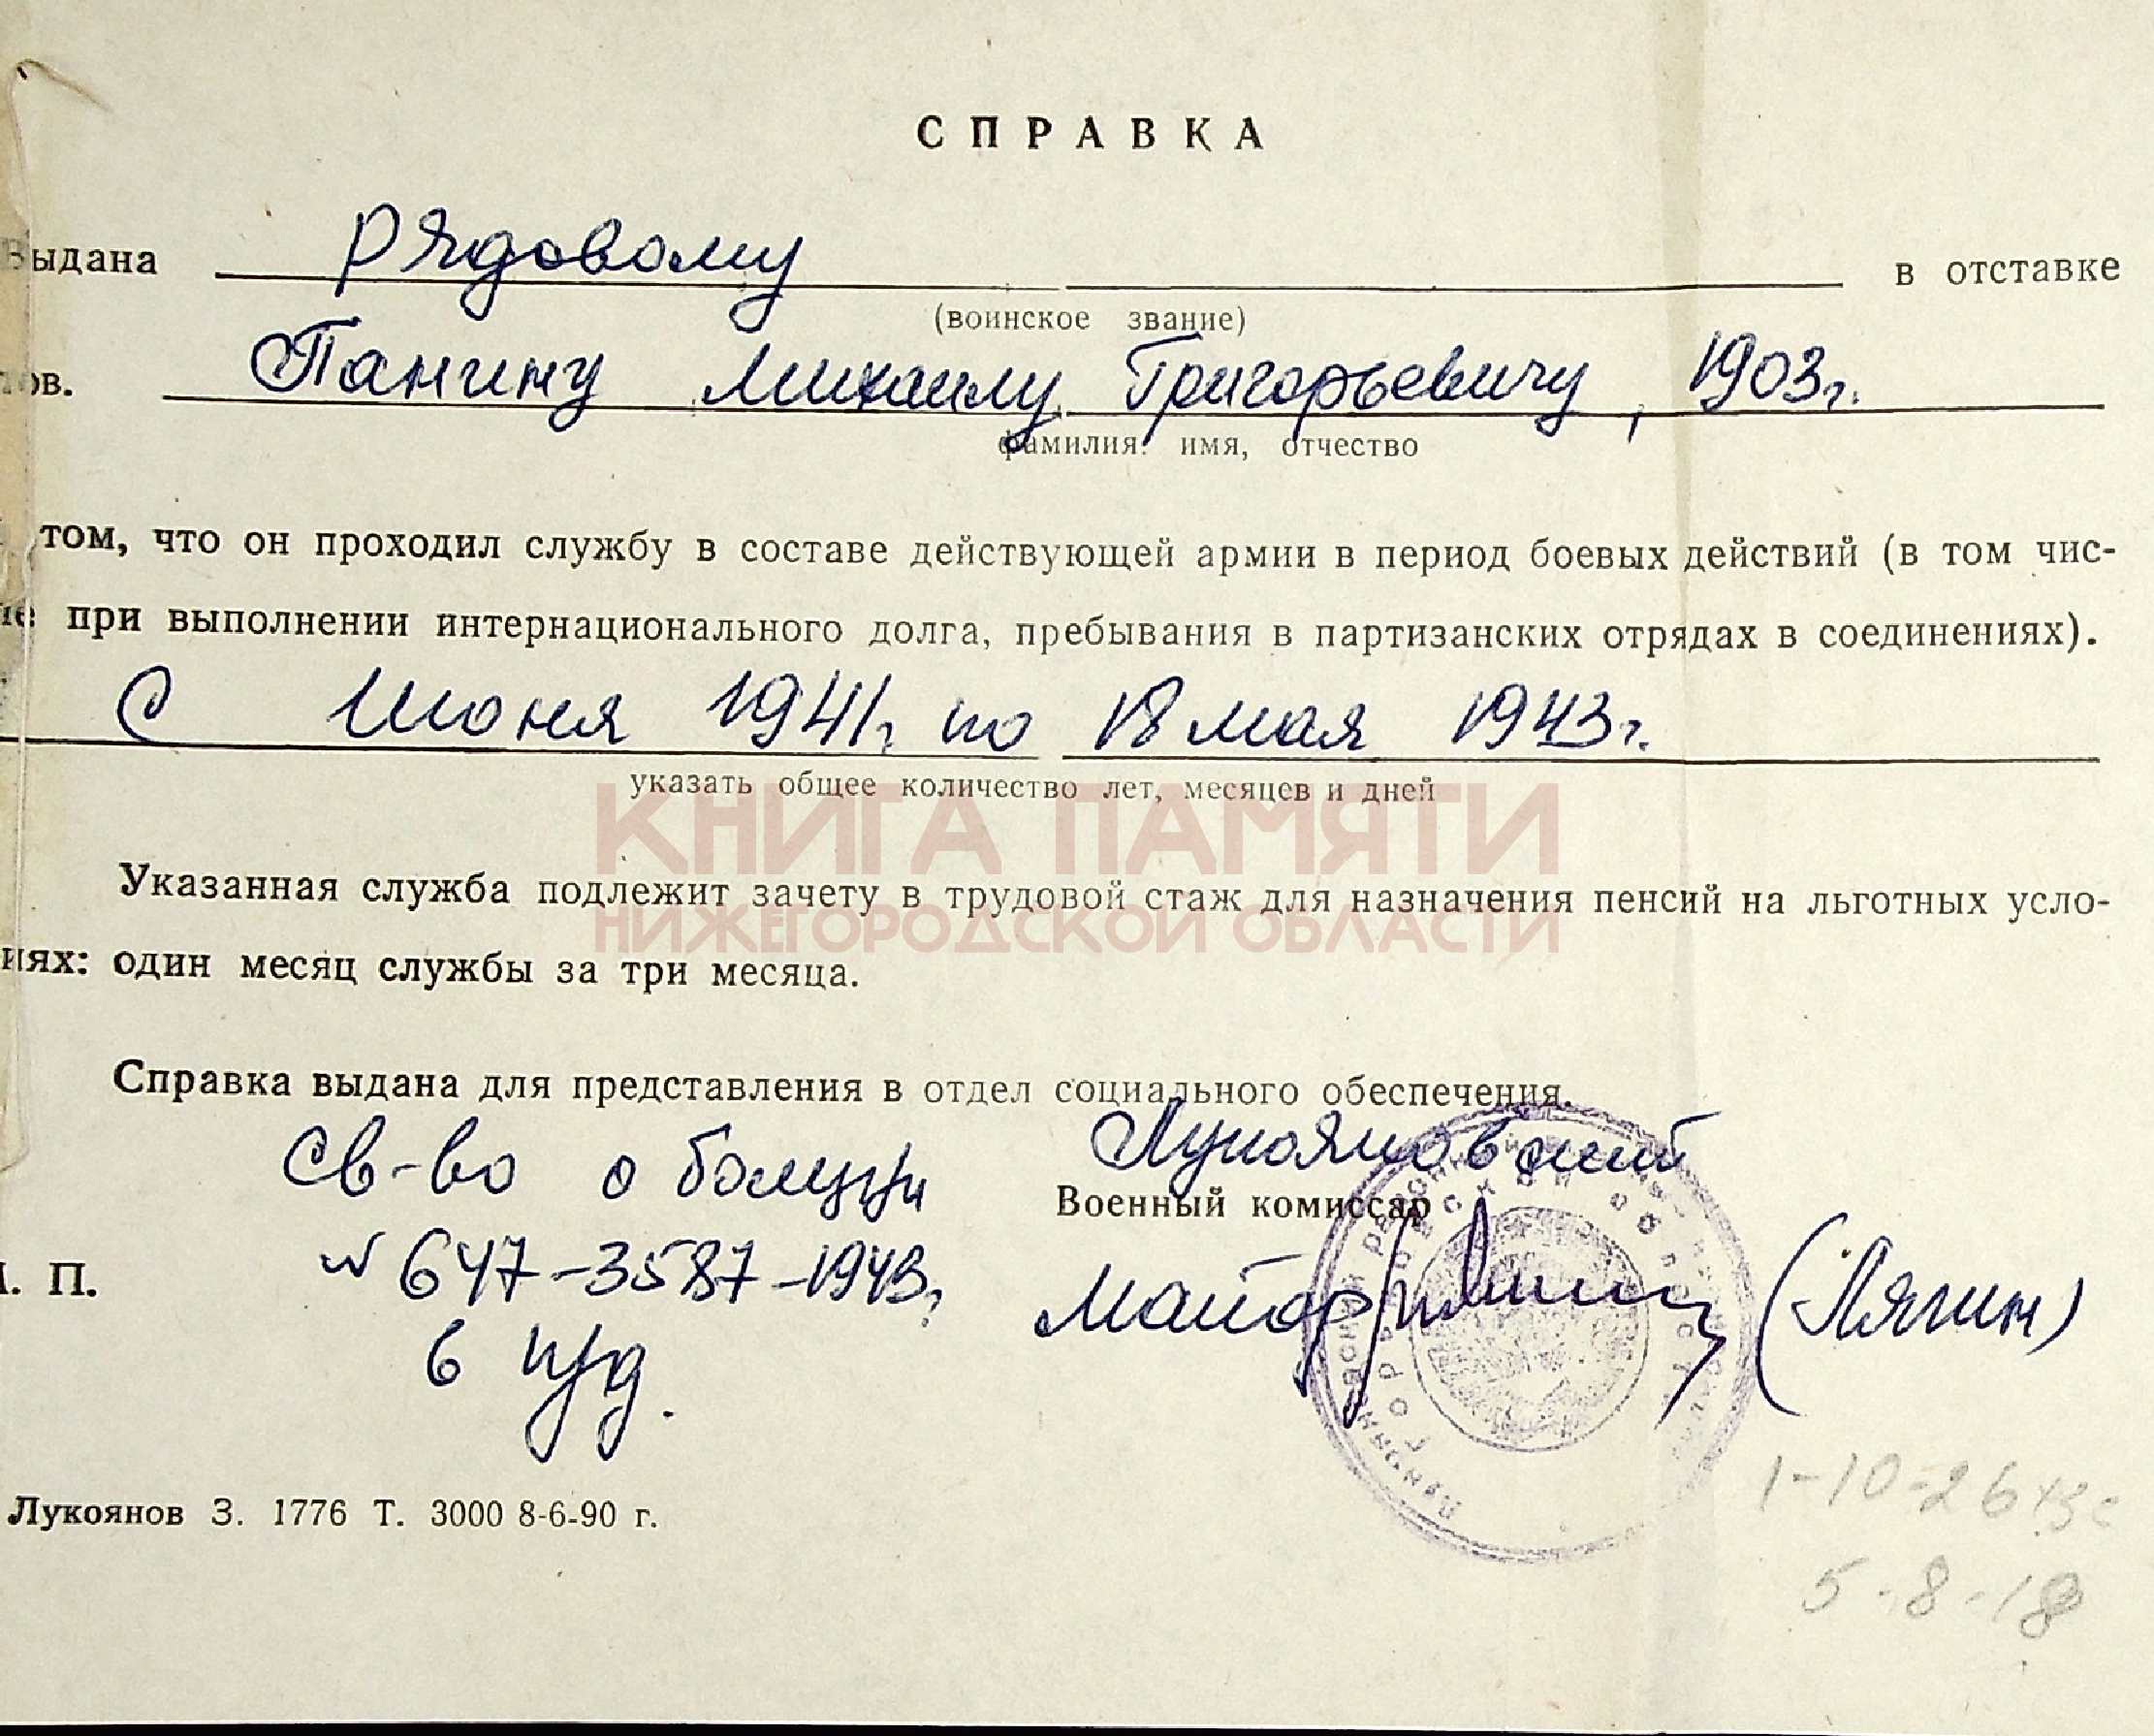 СПРАВКА
Выдана рядовому в отставке
(воинское звание)
тов. Панину Михаилу Григорьевичу, 1903г.
фамилия: имя, отчество
том, что он проходил службу в составе действующей армии в период боевых действий (в том чис-
ле при выполнении интернационального долга, пребывания в партизанских отрядах в соединениях).
С Июня 1941г. по 18 мая 1943г.
указать общее количество лет, месяцев и дней
КНИГА ПАМЯТИ
НИЖЕГОРОДСКОЙ ОБЛАСТИ
Указанная служба подлежит зачету в трудовой стаж для назначения пенсий на льготных усло-
иях: один месяц службы за три месяца.
Справка выдана для представления в отдел социального обеспечения.
Св-во о болезни
Лукояновский
Военный комиссар
№ 647-3587-1943г.
. П.
майор (Лягин)
в п/д.
Лукоянов З. 1776 Т. 3000 8-6-90 г.
5-8-18